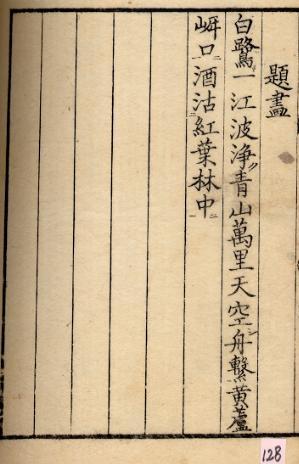 題畫
白鷺一江波淨青山萬里天空舟繫黃蘆
岍口酒沽紅葉林中
128